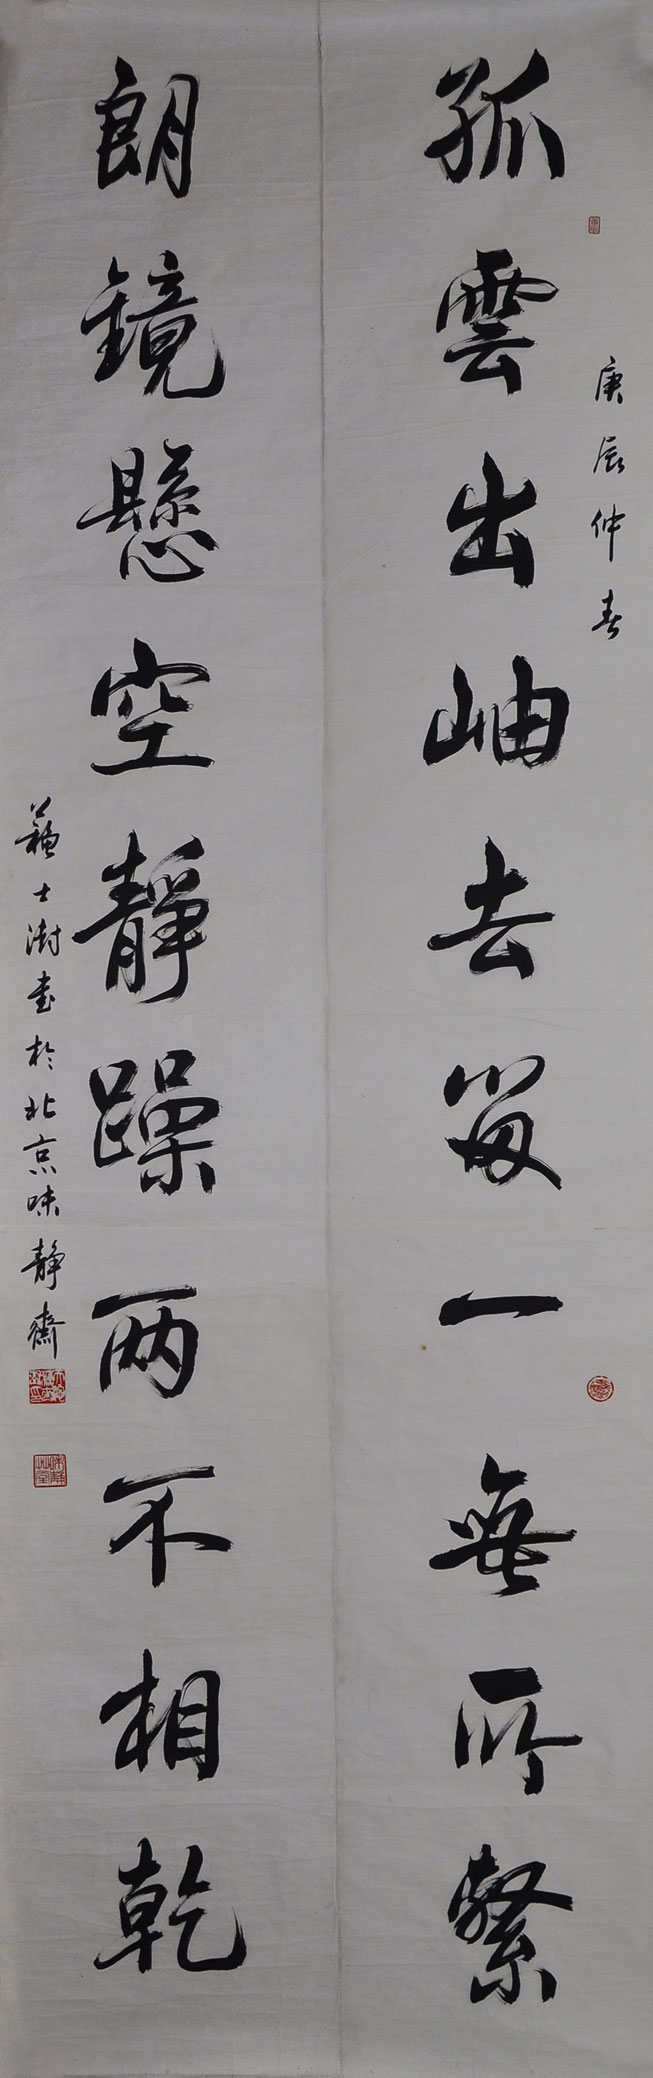 庚辰仲春
孤雲出岫去留一無所繫
朗鏡懸空靜躁兩不相乾
蘇士澍書於北京味靜齋